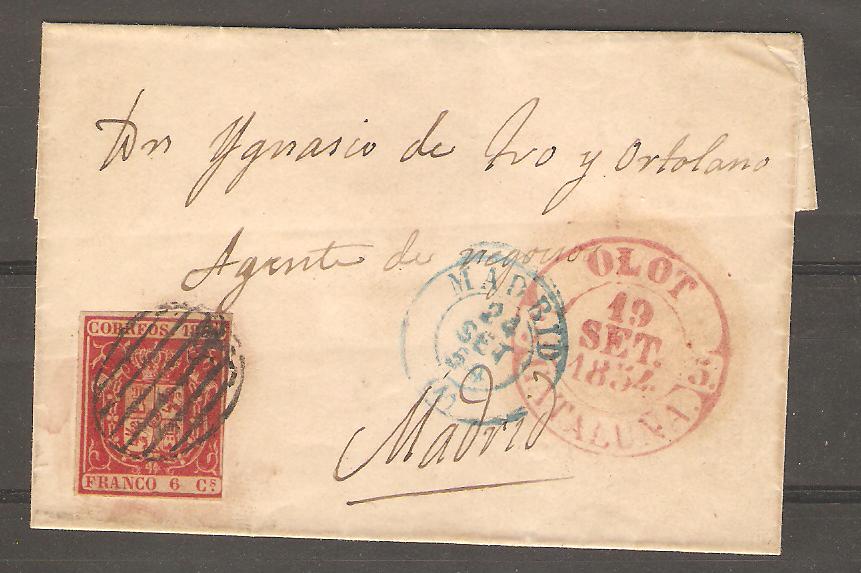 Dn Ygnasio de Yvo y Ortolano
Agente de negocios
Madrid
CORREOS 18
FRANCO 6 Cs
MADRID
SET
OLOT
19
SET.
1854
CATALUÑA.